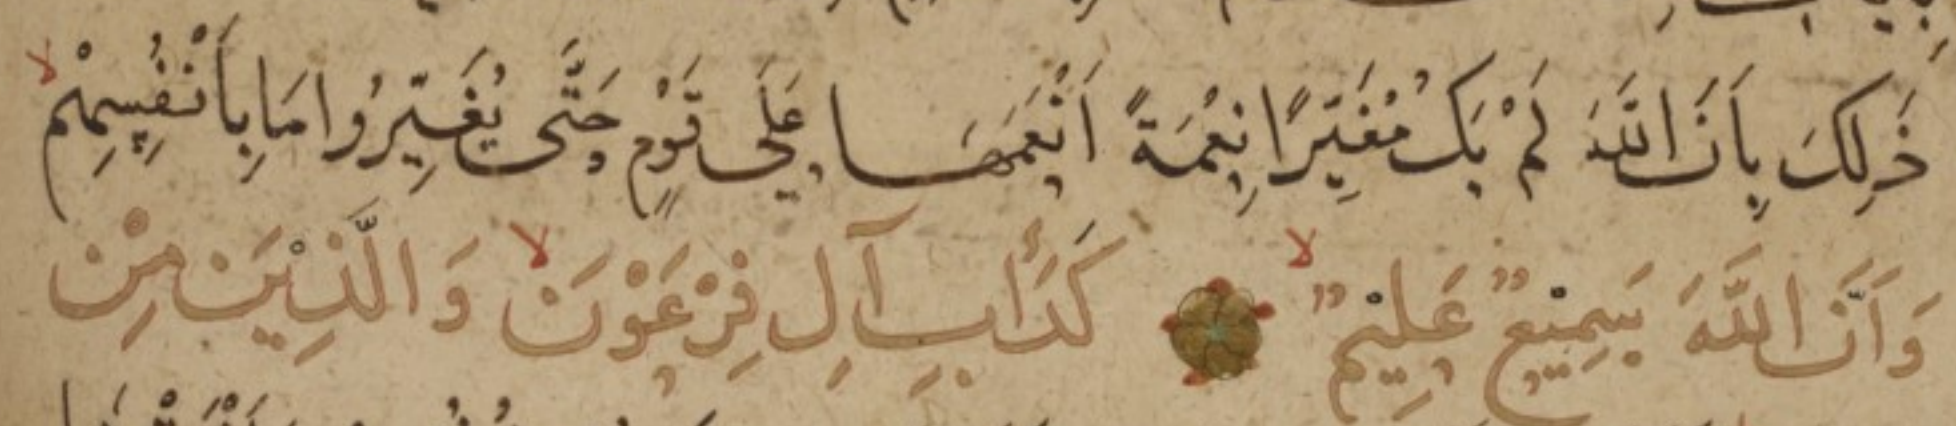 ذَٰلِكَ بِأَنَّ اللَّهَ لَمْ يَكُ مُغَيِّرًا نِعْمَةً اَنْعَمَهَا عَلَى قَوْمٍ حَتَّى يُغَيِّرُوا مَا بِأَنْفُسِهِمْ لا
وَاَنَّ اللَّهَ سَمِيْعٌ عَلِيْمٌ لا كَدَأْبِ آلِ فِرْعَوْنَ لا وَالَّذِيْنَ مِنْ